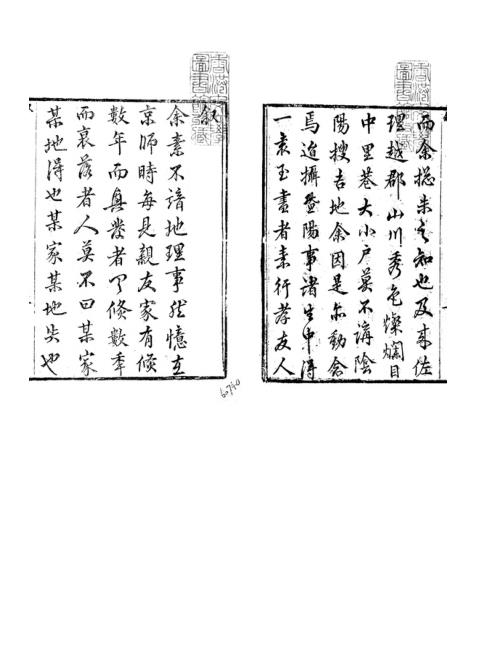 叙
余素不諳地理事然憶在
京師時每見親友家有倏
數年而興發者又倏數年
而衰落者人莫不曰某家
某地得也某家某地失也
而余總未之知也及来佐
理越郡山川秀色燦爛目
中里巷大小户莫不講陰
陽搜吉地余因是亦動念
焉迨攝暨陽事諸生中得
一袁玉書者素行孝友人